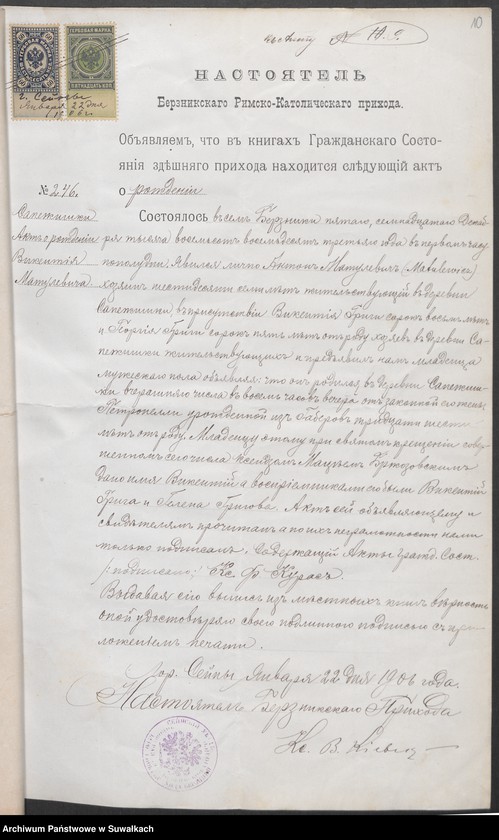 10
НАСТОЯТЕЛЬ
Берзникскаго Римско-Католическаго прихода.
Объявляемъ, что въ книгахъ Гражданскаго Состо-
янія здѣшняго прихода находится слѣдующій актъ
№ 246. о рожденіи
Сапетишки
Актъ о рожденіи
Викентія
Матулевича
Состоялось въ селѣ Берзники пятаго, семнадцатаго Декаб-
ря тысяча восемьсотъ восемьдесятъ третьяго года въ первомъ часу
пополудни. Явился лично Антонъ Матулевичъ (Matulewicz)
хозяинъ шестидесяти семи лѣтъ жительствующій въ деревни
Сапетишки, въ присутствіи Викентія Григи сорокъ восемь лѣтъ
и Георгія Григи сорокъ пять лѣтъ отъ роду хозяевъ въ деревни Са-
петишки жительствующихъ и предъявилъ намъ младенца
мужескаго пола объявляя: что онъ родился въ деревни Сапетиш-
ки вчерашняго числа въ восемь часовъ вечера отъ законной его жены
Петронели урожденной изъ тридцати шести
лѣтъ отъ роду. Младенцу этому при святомъ крещеніи совер-
шенномъ сего числа Ксендзомъ
дано имя Викентій а воспріемниками его были Викентій
Грига и Елена Григова. Актъ сей объявляющему и
свидѣтелямъ прочитанъ а по ихъ неграмотности нами
только подписанъ. Содержащій Акты Гражд. Сост.
/:подписано:/ Кс. Ф.
Выдавая сію выпись изъ мѣстныхъ книгъ вѣрность
оной удостовѣряю своею подлинною подписью съ при-
ложеніемъ печати.
Гор. Сейны Января 22 дня 1906 года.
Настоятель Берзникскаго Прихода
Кс. В.
ГЕРБОВАЯ МАРКА
60
ГЕРБОВАЯ МАРКА
г. Сейны
Января 22 дня
1906 г.
Archiwum Państwowe w Suwałkach